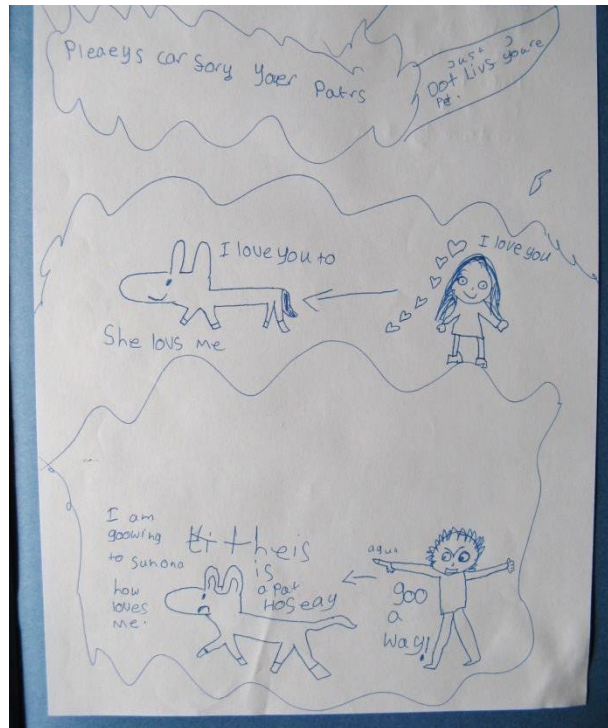 Pleaeys car fory yoer Patrs
Just
Dot Livs youre
Pet.
I love you to
I love you
She lovs me
I am
goowing
to sunona
how
loves
me.
theis
is
a pat
HOSeay
agua
goo
a
way!